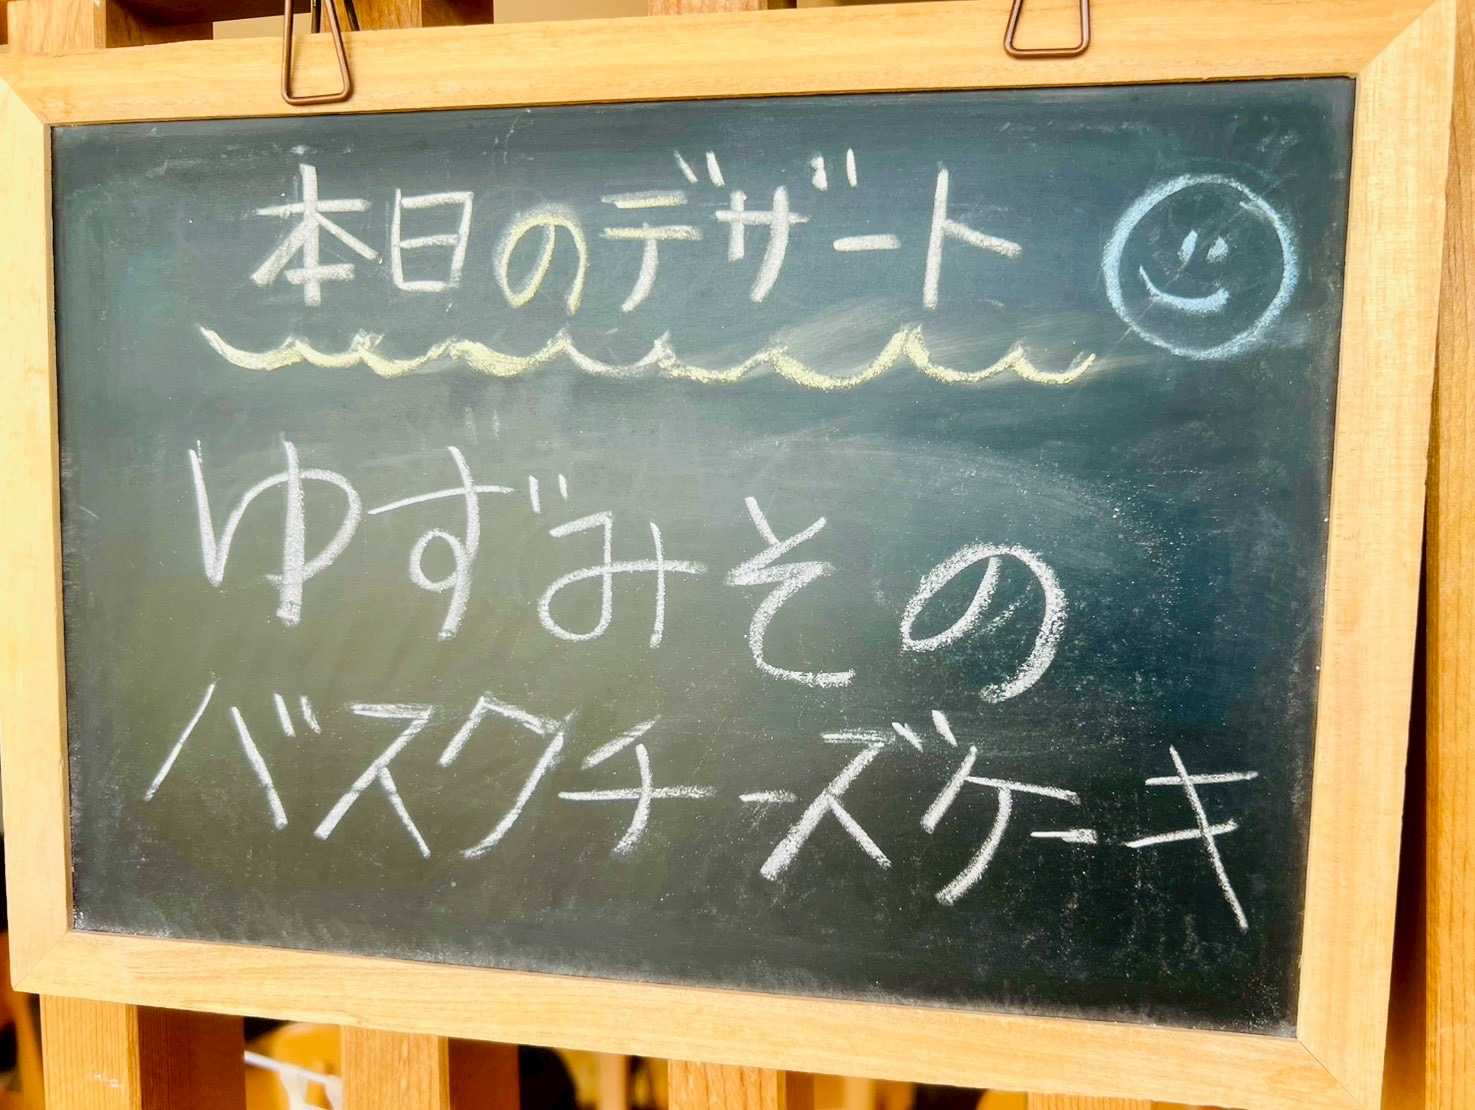 本日のデザート
ゆずみその
バスクチーズケーキ